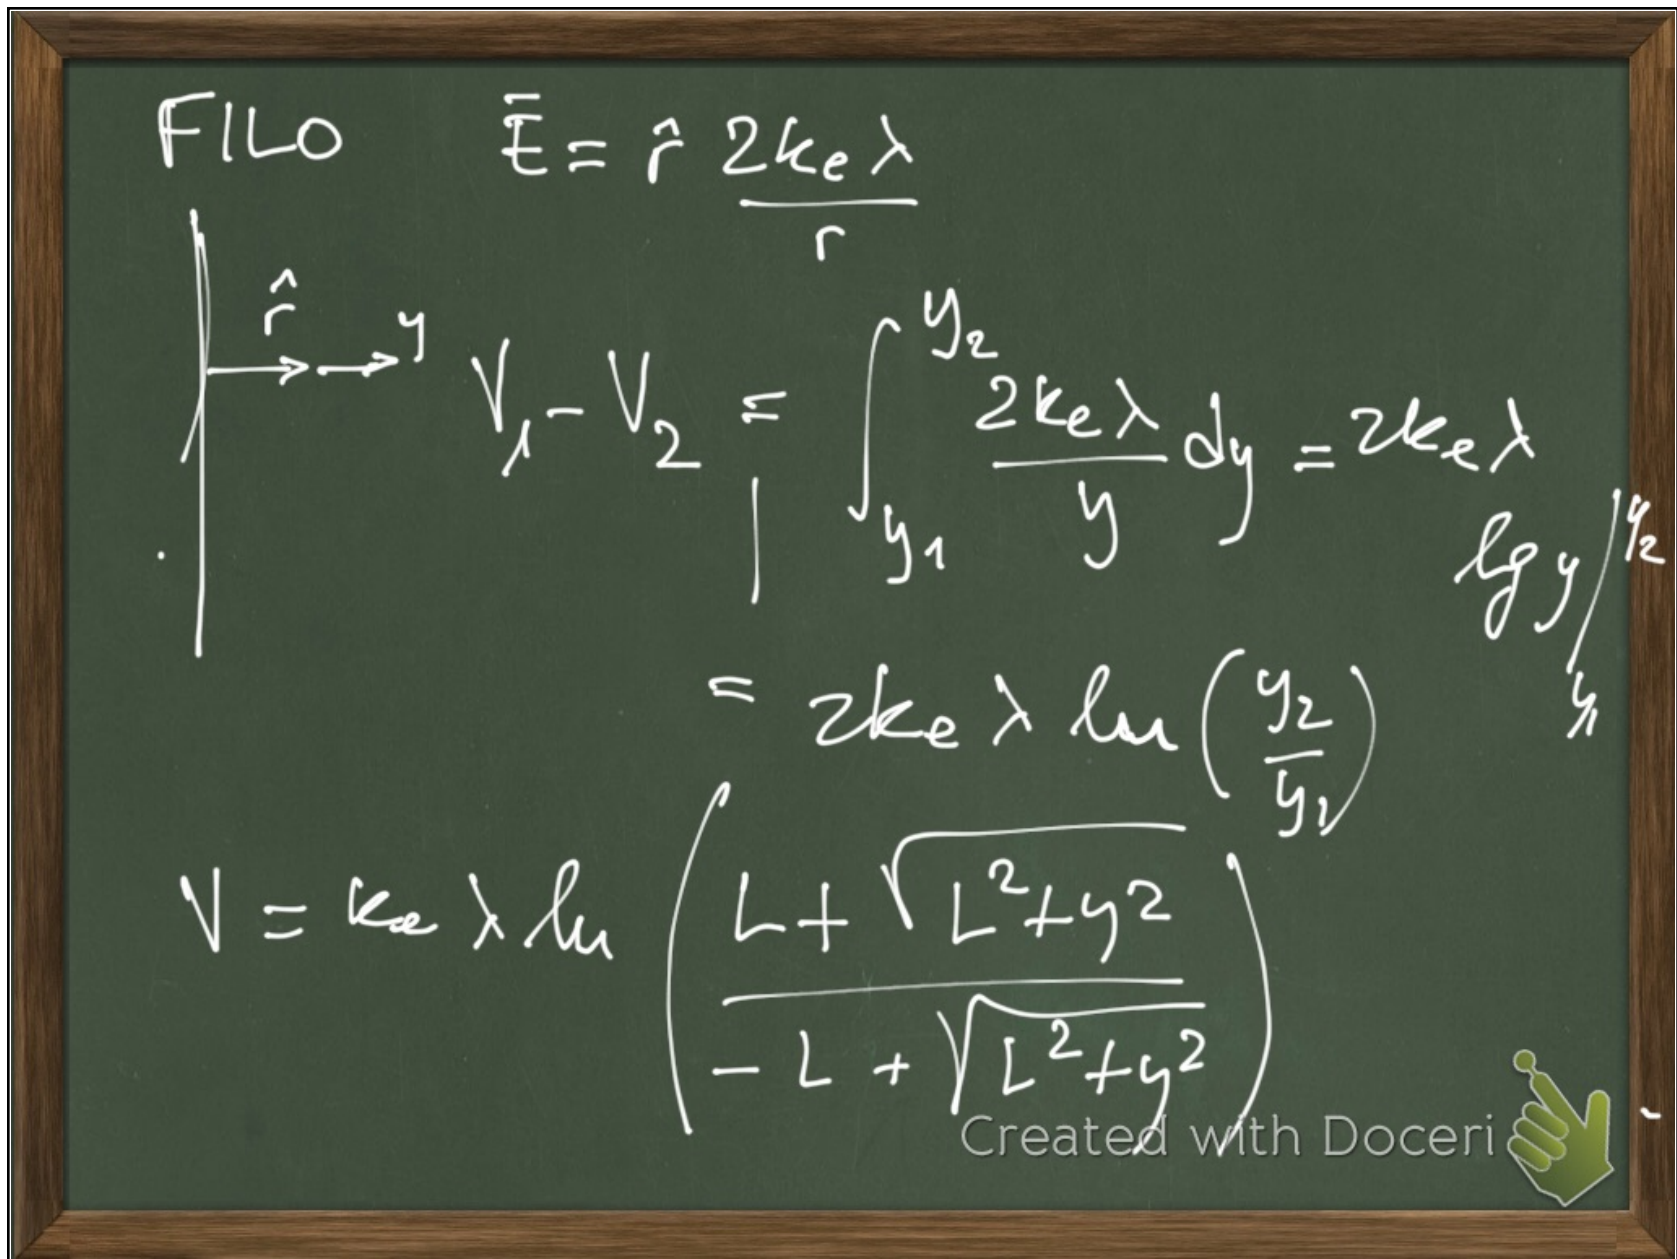 FILO Ē = r̂ 2kₑλ / r
r̂ y
V₁ - V₂ = ∫_{y₁}^{y₂} 2kₑλ / y dy = 2kₑλ
lg y |_{y₁}^{y₂}
= 2kₑ λ ln (y₂ / y₁)
V = kₑ λ ln ( (L + √(L² + y²)) / (- L + √(L² + y²)) )
Created with Doceri